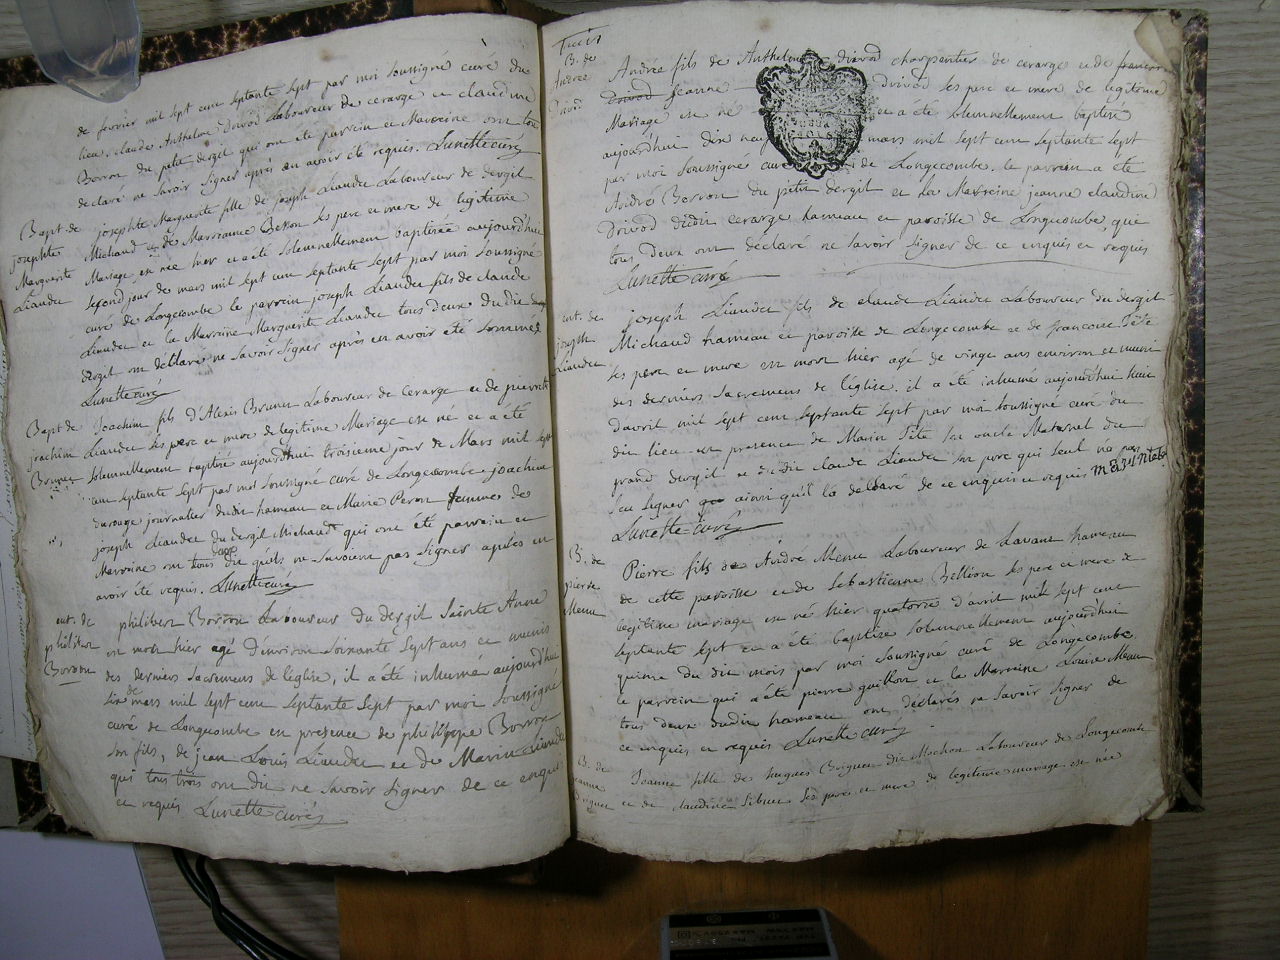 de fevrier mil sept cent septante sept par moi soussigné curé du
lieu. claude Anthelme Drivod Laboureur de cerarge et claudine
Borron du petit dergil qui ont été parrein et Marreine ont tous
declaré ne savoir signer après en avoir été requis. Lunette curé
Bapt de
josephte
Marguerite
Liaudet
josephte Marguerite fille de joseph Liaudet Laboureur de dergil
Michaud et de Marrianne ses pere et mere de legitime
Mariage en née hier et a été solemnellement baptisée aujourd'hui
second jour de mars mil sept cent septante sept par moi soussigné
curé de Longecombe le parrein joseph Liaudet fils de claude
Liaudet et la Marreine Marguerite Liaudet tous deux du dit
dergil ont déclarés ne savoir signer après en avoir été sommés
Lunette curé
Bapt de
joachim
Brunet
Joachim fils d'Alexis Brunet Laboureur de Cerarge et de pierrette
Liaudet ses pere et mere de legitime Mariage est né et a été
solemnellement baptisé aujourd'hui troisieme jour de Mars mil sept
cent septante sept par moi soussigné curé de Longecombe. joachim
journalier dudit hameau et Marie Peron femme de
joseph Liaudet du dergil Michaud qui ont été parrein et
Marreine ont tous deux dit qu'ils ne savoient pas signer après en
avoir été requis. Lunette curé
ent. de
philibert
Borron
philibert Borron Laboureur du dergil Sainte Anne
est mort hier agé d'environ soixante sept ans et munis
des derniers sacremens de l'église, il a été inhumé aujourd'hui
six de mars mil sept cent septante sept par moi soussigné
curé de Longecombe en presence de philippe Borron
son fils, de jean Louis Liaudet et de Marin Liaudet
qui tous trois ont dit ne savoir signer de ce enquis
et requis Lunette curé
B. de
Andrée
Drivod
Andrée fils de Anthelme drivod charpentier de cerarge et de francoise
Jeanne drivod ses pere et mere de legitime
Mariage est né et a été solemnellement baptisé
aujourd'hui dix neuf mars mil sept cent septante sept
par moi soussigné curé de Longecombe. le parrein a été
André Borron du petit dergil et la Marreine jeanne claudine
Drivod dudit cerarge hameau et paroisse de Longecombe, que
tous deux ont déclaré ne savoir signer de ce enquis et requis
Lunette curé
ent. de
joseph
Liaudet
joseph Liaudet fils de claude Liaudet Laboureur du dergil
Michaud hameau et paroisse de Longecombe et de francoise Tête
ses pere et mere est mort hier agé de vingt ans environ et muni
des derniers sacremens de l'église. il a été inhumé aujourd'hui huit
d'avril mil sept cent septante sept par moi soussigné curé du
dit lieu en presence de Marin Tête son oncle Maternel du
grand dergil et du dit claude Liaudet son pere qui seul n'a pas
seu signer ainsi qu'il l'a declaré de ce enquis et requis
Lunette curé
B. de
pierre
Menu
Pierre fils de André Menu Laboureur de Lavant hameau
de cette paroisse et de Sebastienne Bellion ses pere et mere de
legitime mariage est né hier quatorze d'avril mil sept cent
septante sept et a été baptisé solemnellement aujourd'hui
quinze du dit mois par moi soussigné curé de Longecombe
le parrein qui a été pierre guillon et la Marreine Louise Menu
tous deux dudit hameau ont déclarés ne savoir signer de
ce enquis et requis Lunette curé
B. de
jeanne
Jeanne fille de hugues dit Mochon Laboureur de Longecombe
et de claudine ses pere et mere de legitime mariage est née